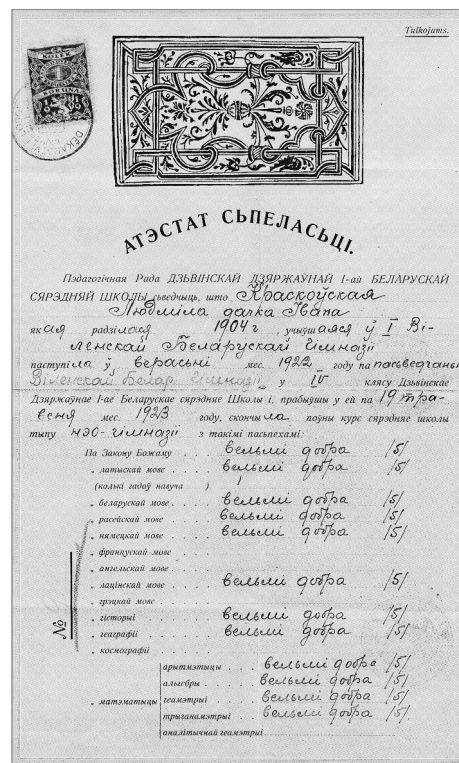 Tulkojams.
KOLEK
1
KORUNA
АТЭСТАТ СЬПЕЛАСЬЦІ.
Пэдагогічная Рада ДЗЬВІНСКАЙ ДЗЯРЖАЎНАЙ І-ай БЕЛАРУСКАЙ
СЯРЭДНЯЙ ШКОЛЫ сьведчыць, што Краскоўская
Людміла дачка Івана
якая радзілася 1904 г. учыўшаяся ў І Ві-
ленскай Беларускай Гімназіі
паступіла ў верасьні мес. 1922 году па пасьведчаньні
Віленскай Белар. Гімназіі у IV клясу Дзьвінскае
Дзяржаўнае І-ае Беларускае сярэдне Школы і, прабыўшы у ей па 19 тра-
веня мес. 1923 году, скончыла поўны курс сярэдне школы
тыпу нэо-гімназіі з такімі пасьпехамі:
Па Закону Божаму вельмі добра /5/
„ латыскай мове вельмі добра /5/
(колькі гадоў навуча )
„ беларускай мове вельмі добра /5/
„ расейскай мове вельмі добра /5/
„ нямецкай мове вельмі добра /5/
„ француcкай мове
„ ангельскай мове
„ лацінскай мове вельмі добра /5/
„ грэцкай мове
„ гісторыі вельмі добра /5/
„ геаграфіі вельмі добра /5/
„ космографіі
№
„ матэматыцы
арытмэтыцы вельмі добра /5/
альгебры вельмі добра /5/
геамэтрыі вельмі добра /5/
трыганамэтрыі вельмі добра /5/
аналітычнай геамэтрыі